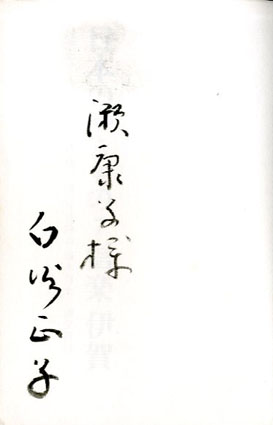 瀬康子様
白洲正子